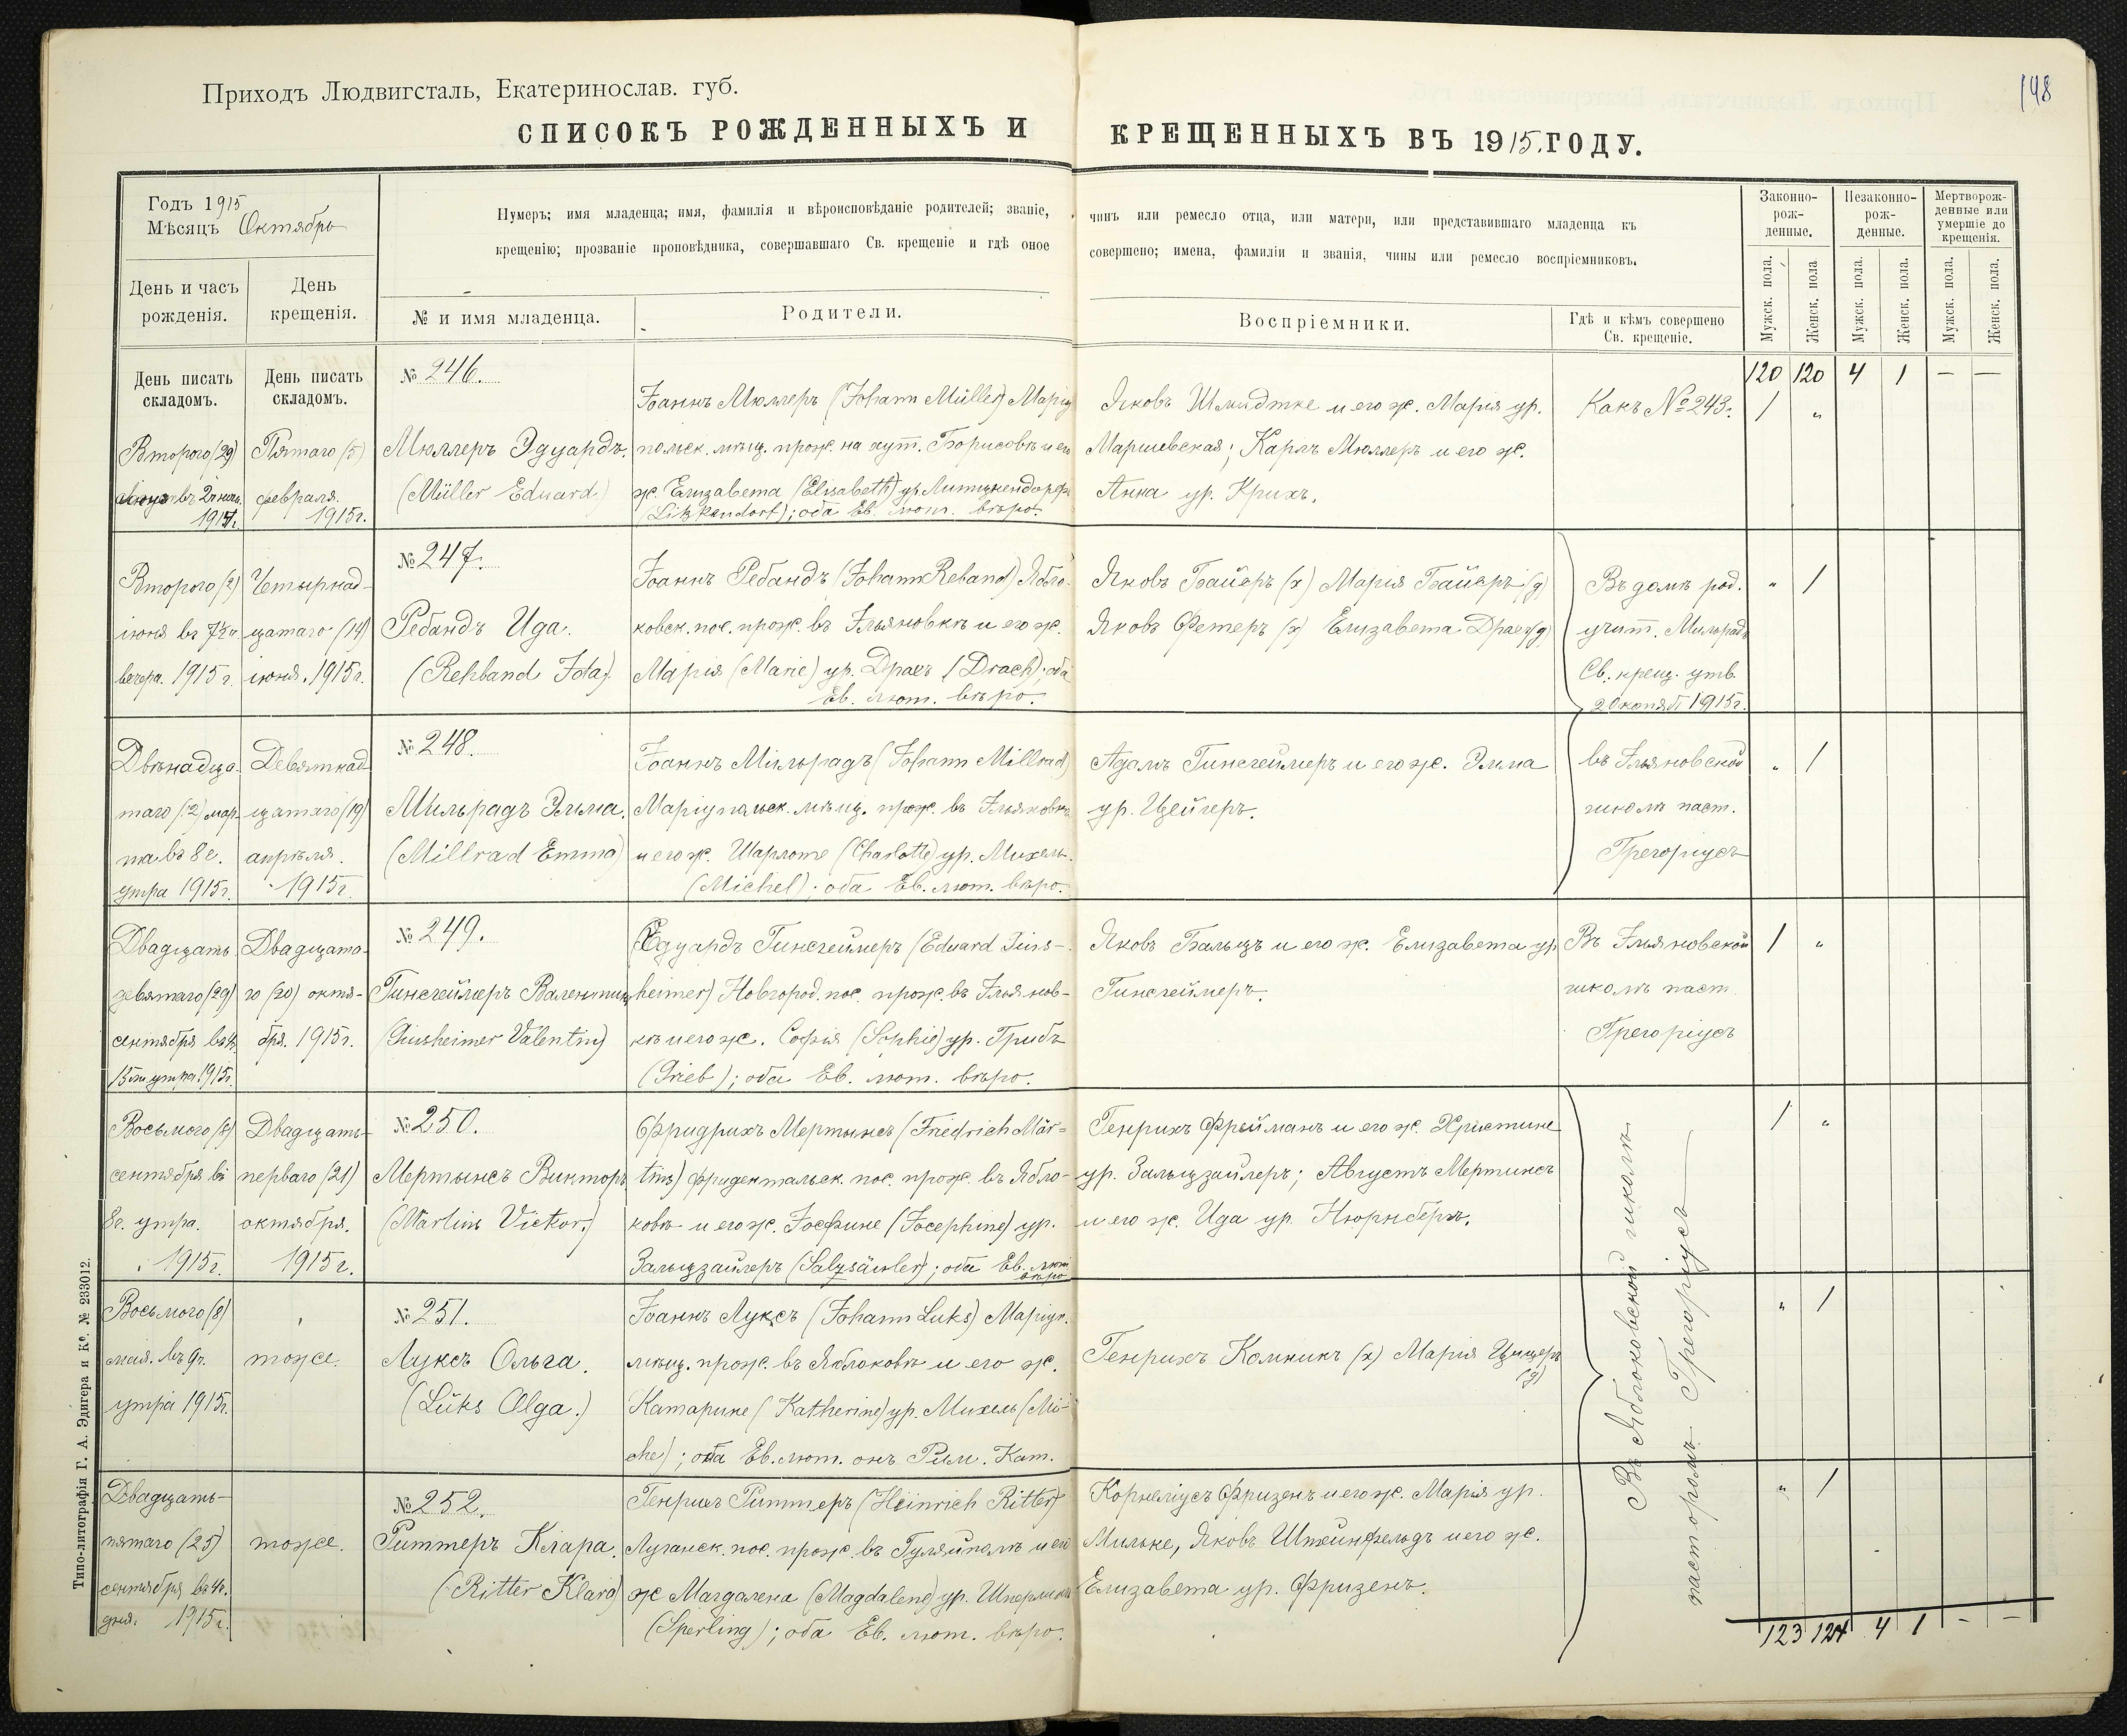 148
Приходъ Людвигсталь, Екатеринослав. губ.
СПИСОКЪ РОЖДЕННЫХЪ И КРЕЩЕННЫХЪ ВЪ 1915. ГОДУ.
Годъ 1915
Мѣсяцъ Октябрь
День и часъ рожденія.
День крещенія.
Нумеръ; имя младенца; имя, фамилія и вѣроисповѣданіе родителей; званіе, чинъ или ремесло отца, или матери, или представившаго младенца къ
крещенію; прозваніе проповѣдника, совершавшаго Св. крещеніе и гдѣ оное совершено; имена, фамиліи и званія, чины или ремесло воспріемниковъ.
№ и имя младенца.
Родители.
Воспріемники.
Гдѣ и кѣмъ совершено Св. крещеніе.
Законно-рож-денные.
Незаконно-рож-денные.
Мертворож-денные или умершіе до крещенія.
Мужск. пола.
Женск. пола
Мужск. пола.
Женск. пола.
Мужск. пола.
Женск. пола.
День писать складомъ.
День писать складомъ.
120 120 4 1 — —
Второго (29)
въ 2 ч. ночи
1914 г.
Пятаго (5)
февраля.
1915 г.
№ 246.
Мюллеръ Эдуардъ.
(Müller Eduard)
Іоаннъ Мюллеръ (Johann Müller) Маріу
польск. мѣщ. прож. на хут. Борисовкѣ и его
ж. Елизавета (Elisabeth) ур. Литцкендорфъ
(Litzkendorf); оба Ев. лют. вѣро.
Яковъ Шмидтке и его ж. Марія ур.
Маршевская; Карлъ Мюллеръ и его ж.
Анна ур. Крихъ.
Какъ № 243.
1 "
Второго (2)
іюня въ 7½ ч.
вечера. 1915 г.
Четырнад-
цатаго (14)
іюня. 1915 г.
№ 247.
Ребандъ Ида.
(Rehband Ida).
Іоаннъ Ребандъ (Johann Reband) Ябло-
ковск. пос. прож. въ Ульяновкѣ и его ж.
Марія (Marie) ур. Драхъ (Drach); оба
Ев. лют. вѣро.
Яковъ Байеръ (х) Марія Байеръ (д)
Яковъ Фетеръ (х) Елизавета Драхъ (д)
Въ домѣ род.
учит. Мильрадъ
Св. крещ. утв.
1915 г.
" 1
Двѣнадца-
таго (12) мар-
та въ 8 ч.
утра 1915 г.
Девятнад-
цатаго (19)
апрѣля.
1915 г.
№ 248.
Мильрадъ Эмма.
(Millrad Emma)
Іоаннъ Мильрадъ (Johann Millrad)
Маріупольск. мѣщ. прож. въ Ульяновкѣ
и его ж. Шарлоте (Charlotte) ур. Михель.
(Michel); оба Ев. лют. вѣро.
Адамъ Гинсгеймеръ и его ж. Эмма
ур. Цейлеръ.
въ Ульяновской
школѣ паст.
Грегоріусъ
" 1
Двадцать
девятаго (29)
сентября въ 4 ч.
15 м. утра. 1915 г.
Двадцата-
го (20) октя-
бря. 1915 г.
№ 249.
Гинсгеймеръ Валентинъ
(Ginsheimer Valentin)
Едуардъ Гинсгеймеръ (Eduard Gins-
heimer) Новгород. пос. прож. въ Ульянов-
кѣ и его ж. Софія (Sophie) ур. Грибъ
(Grieb); оба Ев. лют. вѣро.
Яковъ Бальцъ и его ж. Елизавета ур.
Гинсгеймеръ.
Въ Ульяновской
школѣ паст.
Грегоріусъ
1 "
Восьмого (8)
сентября въ
8 ч. утра.
1915 г.
Двадцать
перваго (21)
октября.
1915 г.
№ 250.
Мертынсъ Викторъ
(Martins Victor.)
Фридрихъ Мертынсъ (Friedrich Mär-
tins) Фридентальск. пос. прож. въ Ябло-
ковѣ и его ж. Іосфине (Josephine) ур.
Зальцзайлеръ (Salzsäuler); оба Ев. лют
вѣро
Генрихъ Фрейманъ и его ж. Христине
ур. Зальцзайлеръ; Августъ Мертинсъ
и его ж. Ида ур. Нюрнбергъ.
Въ Яблоковской школѣ
пасторомъ Грегоріусъ
1 "
Восьмого (8)
мая. въ 9 ч.
утра 1915 г.
тоже.
№ 251.
Луксъ Ольга.
(Luks Olga.)
Іоаннъ Луксъ (Johann Luks) Маріуп.
мѣщ. прож. въ Яблоковѣ и его ж.
Катарине (Katherine) ур. Михель (Mi-
chel); она Ев. лют. онъ Рим. Кат.
Генрихъ Комникъ (х) Марія Цицеръ
(д)
" 1
Двадцать-
пятаго (25)
сентября въ 4 ч.
дня. 1915 г.
тоже.
№ 252.
Риттеръ Клара.
(Ritter Klara)
Генрихъ Риттеръ (Heinrich Ritter)
Луганск. пос. прож. въ Гуляйполѣ и его
ж Магдалена (Magdalene) ур. Шперлингъ
(Sperling); оба Ев. лют. вѣро.
Корнеліусъ Фризенъ и его ж. Марія ур.
Мильке, Яковъ Штейнфельдъ и его ж.
Елизавета ур. Фризенъ.
" 1
123 124 4 1 - -
Типо-литографія Г. А. Эдигера и К°. № 233012.